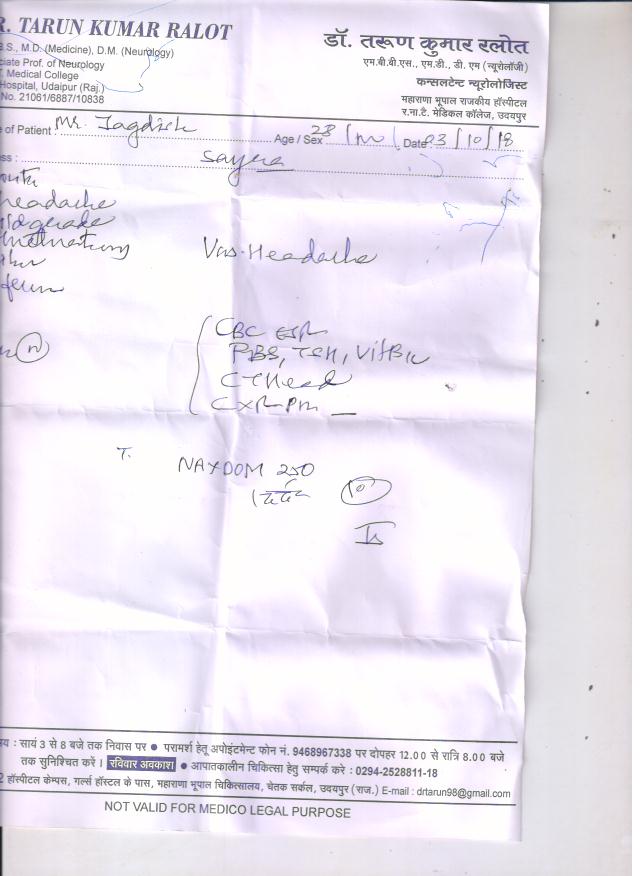 R. TARUN KUMAR RALOT
B.S., M.D. (Medicine), D.M. (Neurology)
ciate Prof. of Neurology
Medical College
Hospital, Udaipur (Raj.)
No. 21061/6887/10838
डॉ. तरूण कुमार रलोत
एम.बी.बी.एस., एम.डी., डी. एम (न्यूरोलॉजी)
कन्सलटेन्ट न्यूरोलोजिस्ट
महाराणा भूपाल राजकीय हॉस्पीटल
र.ना.टे. मेडिकल कॉलेज, उदयपुर
e of Patient : Mr. Jagdish Age / Sex 28 / m Date 03/10/18
ess : Sayra
headache
Vas. Headache
fever
n
CBC ESR
RBS, TSH, VitB12
CT Head
CXR-PA
T. NAXDOM 250
10
मय : सायं 3 से 8 बजे तक निवास पर ● परामर्श हेतू अपोइंटमेन्ट फोन नं. 9468967338 पर दोपहर 12.00 से रात्रि 8.00 बजे
तक सुनिश्चित करें । रविवार अवकाश ● आपातकालीन चिकित्सा हेतु सम्पर्क करे : 0294-2528811-18
2 हॉस्पीटल केम्पस, गर्ल्स हॉस्टल के पास, महाराणा भूपाल चिकित्सालय, चेतक सर्कल, उदयपुर (राज.) E-mail : drtarun98@gmail.com
NOT VALID FOR MEDICO LEGAL PURPOSE